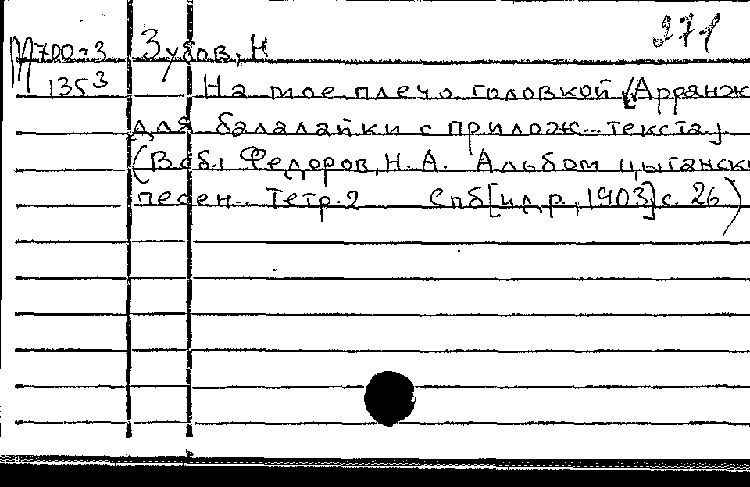 271
М700-3 Зубов, Н
135³ На мое плечо головкой [Арранж
для балалайки с прилож. текста]
(В сб.: Федоров, Н. А. Альбом цыганск
песен. Тетр. 2 Спб [ц.д.р., 1903] с. 26)